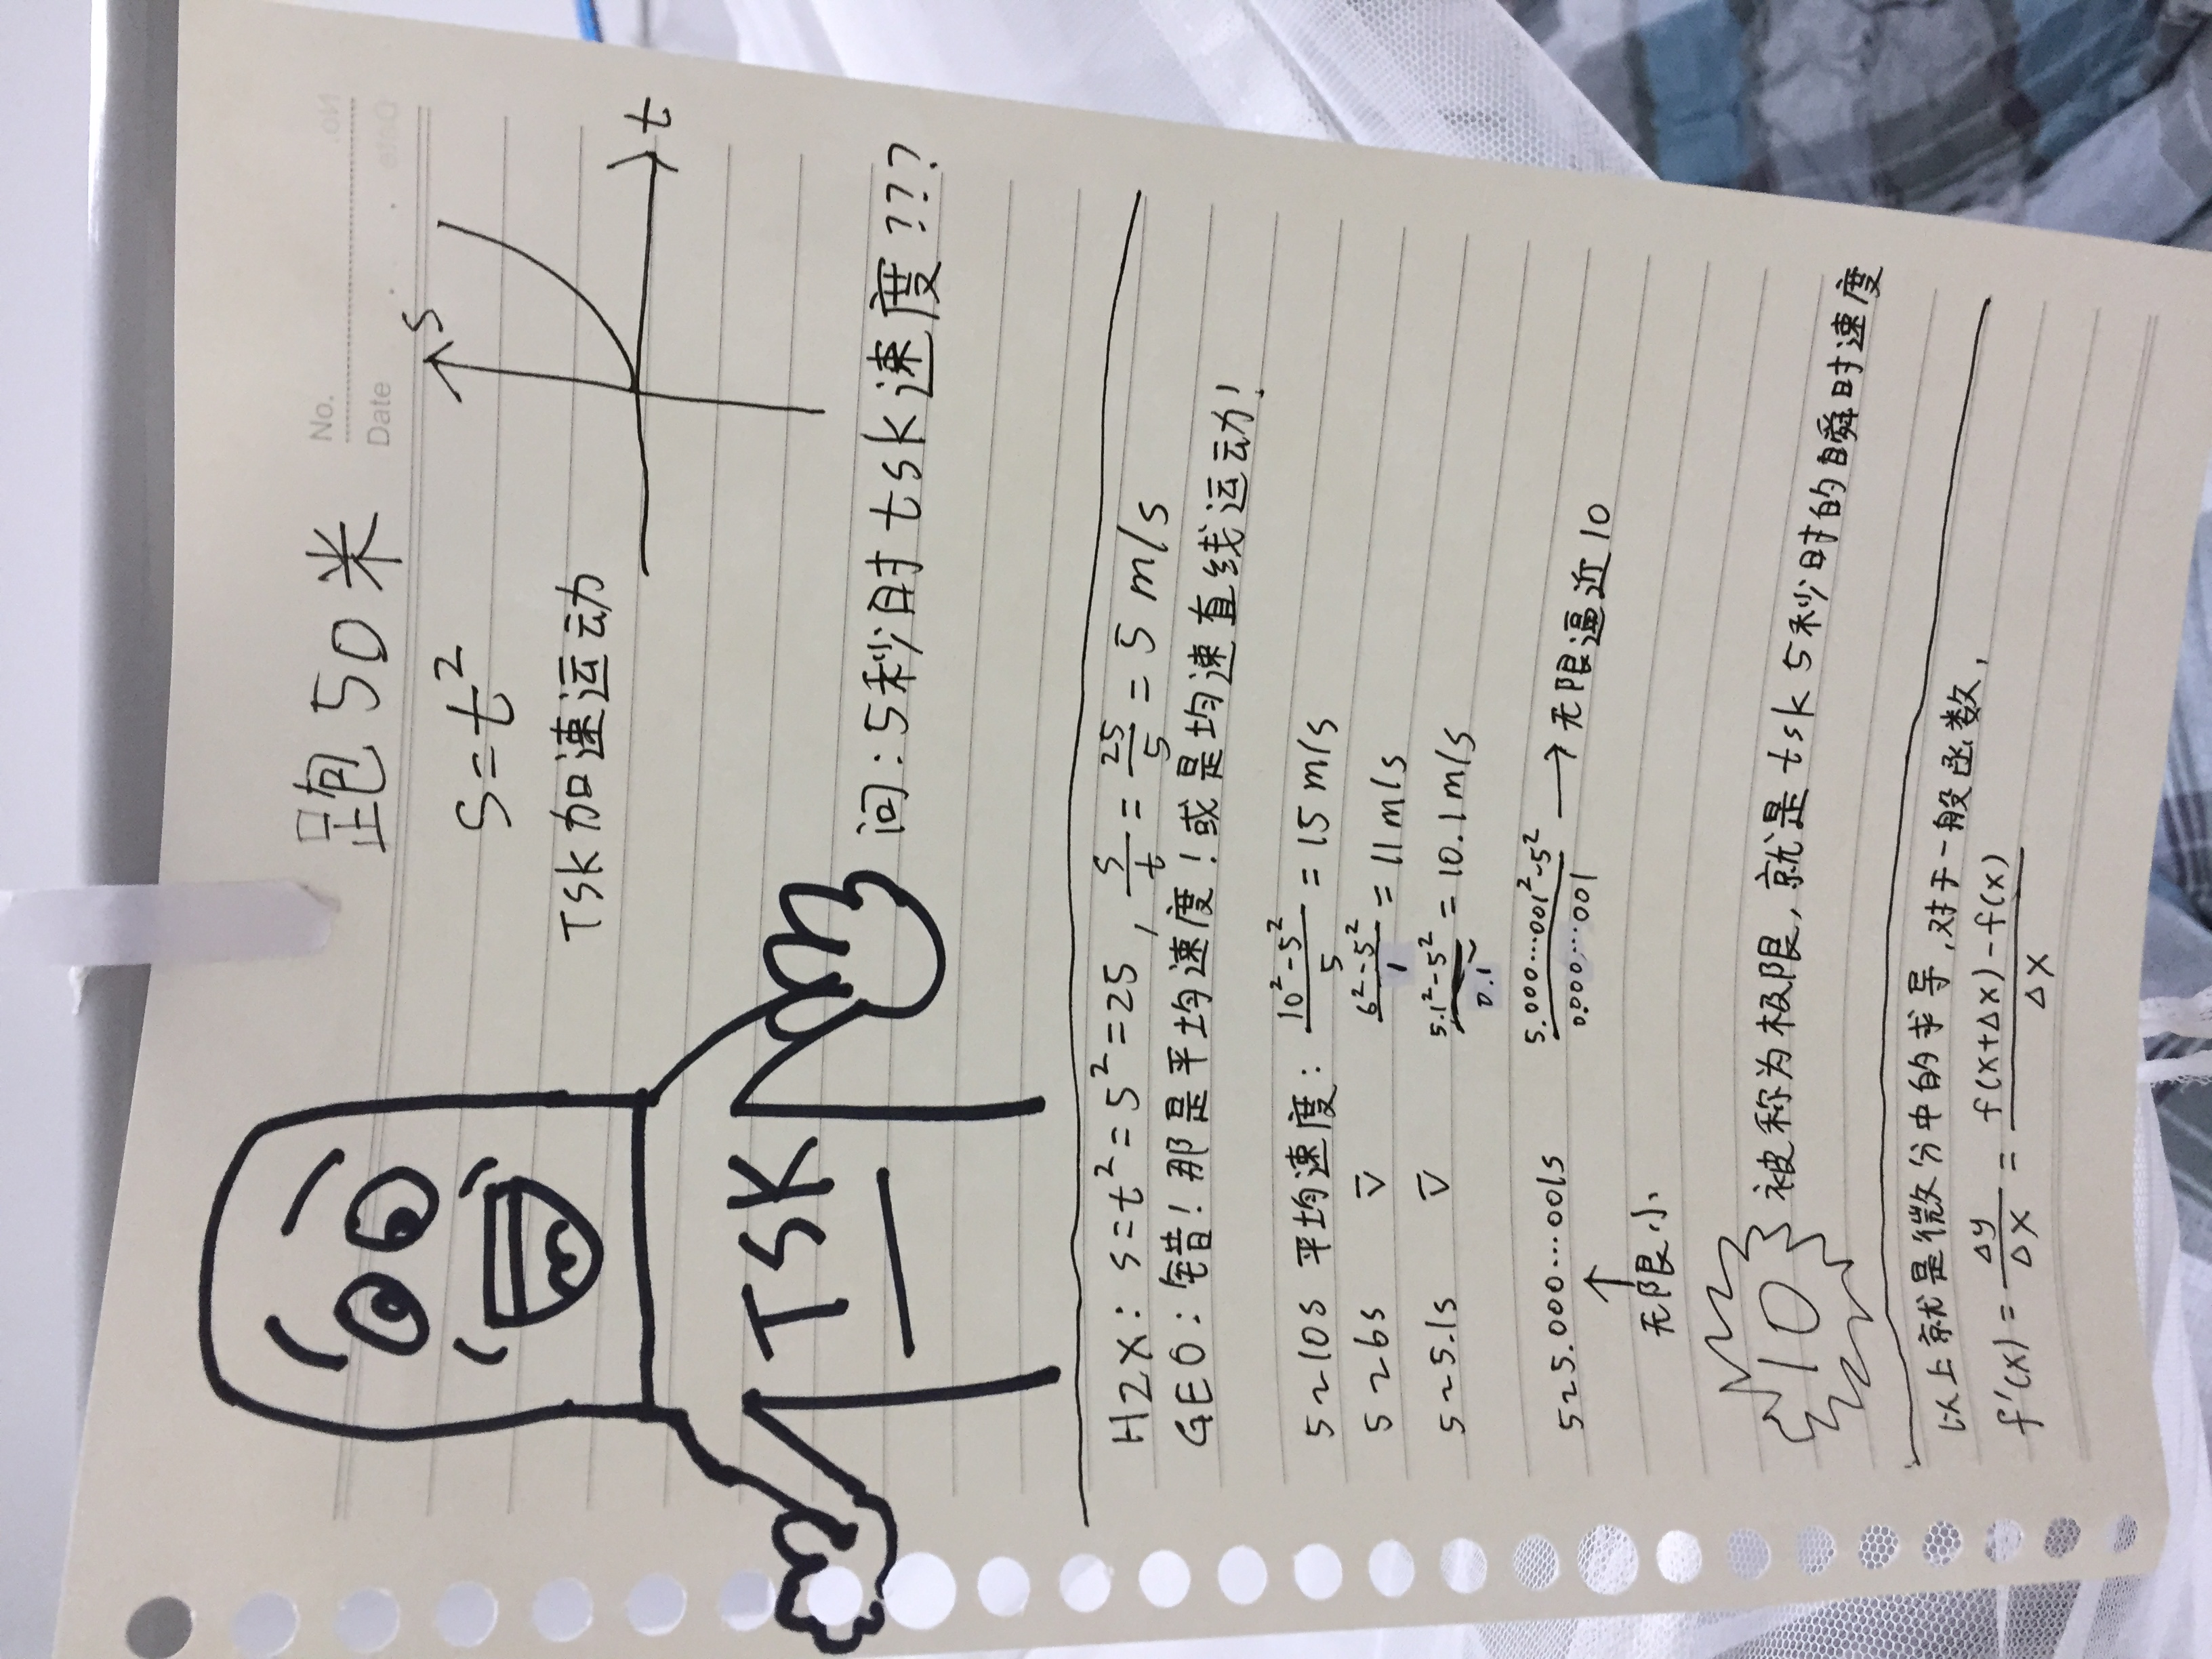 No.
Date
跑50米
s=t²
TSK加速运动
s
t
TSK
问:5秒时tsk速度???
HZX: s=t²=5²=25, s/t=25/5=5 m/s
GEO:错!那是平均速度!或是均速直线运动!
5~10s 平均速度: (10²-5²)/5=15m/s
5~6s v̄ (6²-5²)/1=11m/s
5~5.1s v̄ (5.1²-5²)/0.1=10.1m/s
5~5.000…001s (5.000…001²-5²)/0.000…001→无限逼近10
↑
无限小
10 被称为极限,就是tsk 5秒时的瞬时速度
以上就是微分中的求导,对于一般函数,
f'(x)=Δy/Δx=(f(x+Δx)-f(x))/Δx